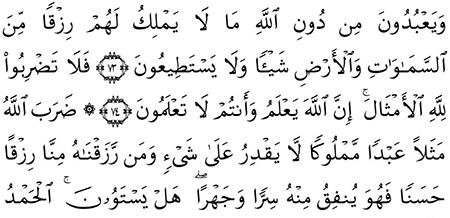 وَيَعْبُدُونَ مِن دُونِ ٱللَّهِ مَا لَا يَمْلِكُ لَهُمْ رِزْقًا مِّنَ
ٱلسَّمَـٰوَٰتِ وَٱلْأَرْضِ شَيْـًٔا وَلَا يَسْتَطِيعُونَ ﴿٧٣﴾ فَلَا تَضْرِبُوا۟
لِلَّهِ ٱلْأَمْثَالَ ۚ إِنَّ ٱللَّهَ يَعْلَمُ وَأَنتُمْ لَا تَعْلَمُونَ ﴿٧٤﴾ ۞ ضَرَبَ ٱللَّهُ
مَثَلًا عَبْدًا مَّمْلُوكًا لَّا يَقْدِرُ عَلَىٰ شَىْءٍ وَمَن رَّزَقْنَـٰهُ مِنَّا رِزْقًا
حَسَنًا فَهُوَ يُنفِقُ مِنْهُ سِرًّا وَجَهْرًا ۖ هَلْ يَسْتَوُۥنَ ۚ ٱلْحَمْدُ